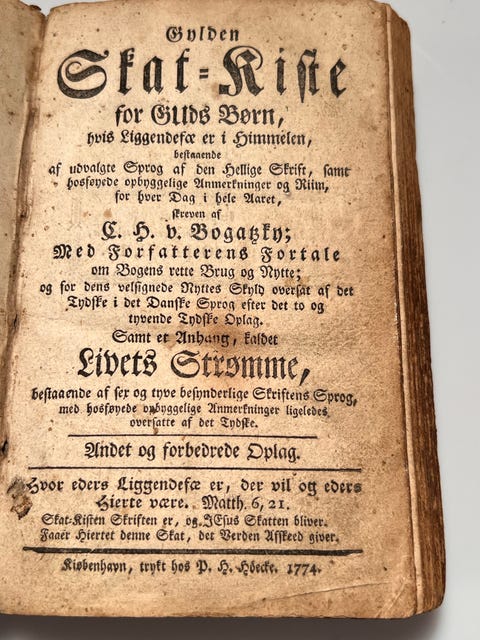 Gylden
Skat-Kiste
for GUds Børn,
hvis Liggendefæ er i Himmelen,
bestaaende
af udvalgte Sprog af den Hellige Skrift, samt
hosføyede opbyggelige Anmerkninger og Riim,
for hver Dag i hele Aaret,
skreven af
C. H. v. Bogatzky;
Med Forfatterens Fortale
om Bogens rette Brug og Nytte;
og for dens velsignede Nyttes Skyld oversat af det
Tydske i det Danske Sprog efter det to og
tyvende Tydske Oplag.
Samt et Anhang, kaldet
Livets Strømme,
bestaaende af sex og tyve besynderlige Skriftens Sprog,
med hosføyede opbyggelige Anmerkninger ligeledes
oversatte af det Tydske.
Andet og forbedrede Oplag.
Hvor eders Liggendefæ er, der vil og eders
Hierte være. Matth. 6, 21.
Skat-Kisten Skriften er, og JEsus Skatten bliver.
Faaer Hiertet denne Skat, det Verden Afskeed giver.
Kiøbenhavn, trykt hos P. H. Höecke. 1774.